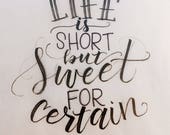 LIFE
is
SHORT
but
Sweet
FOR
certain